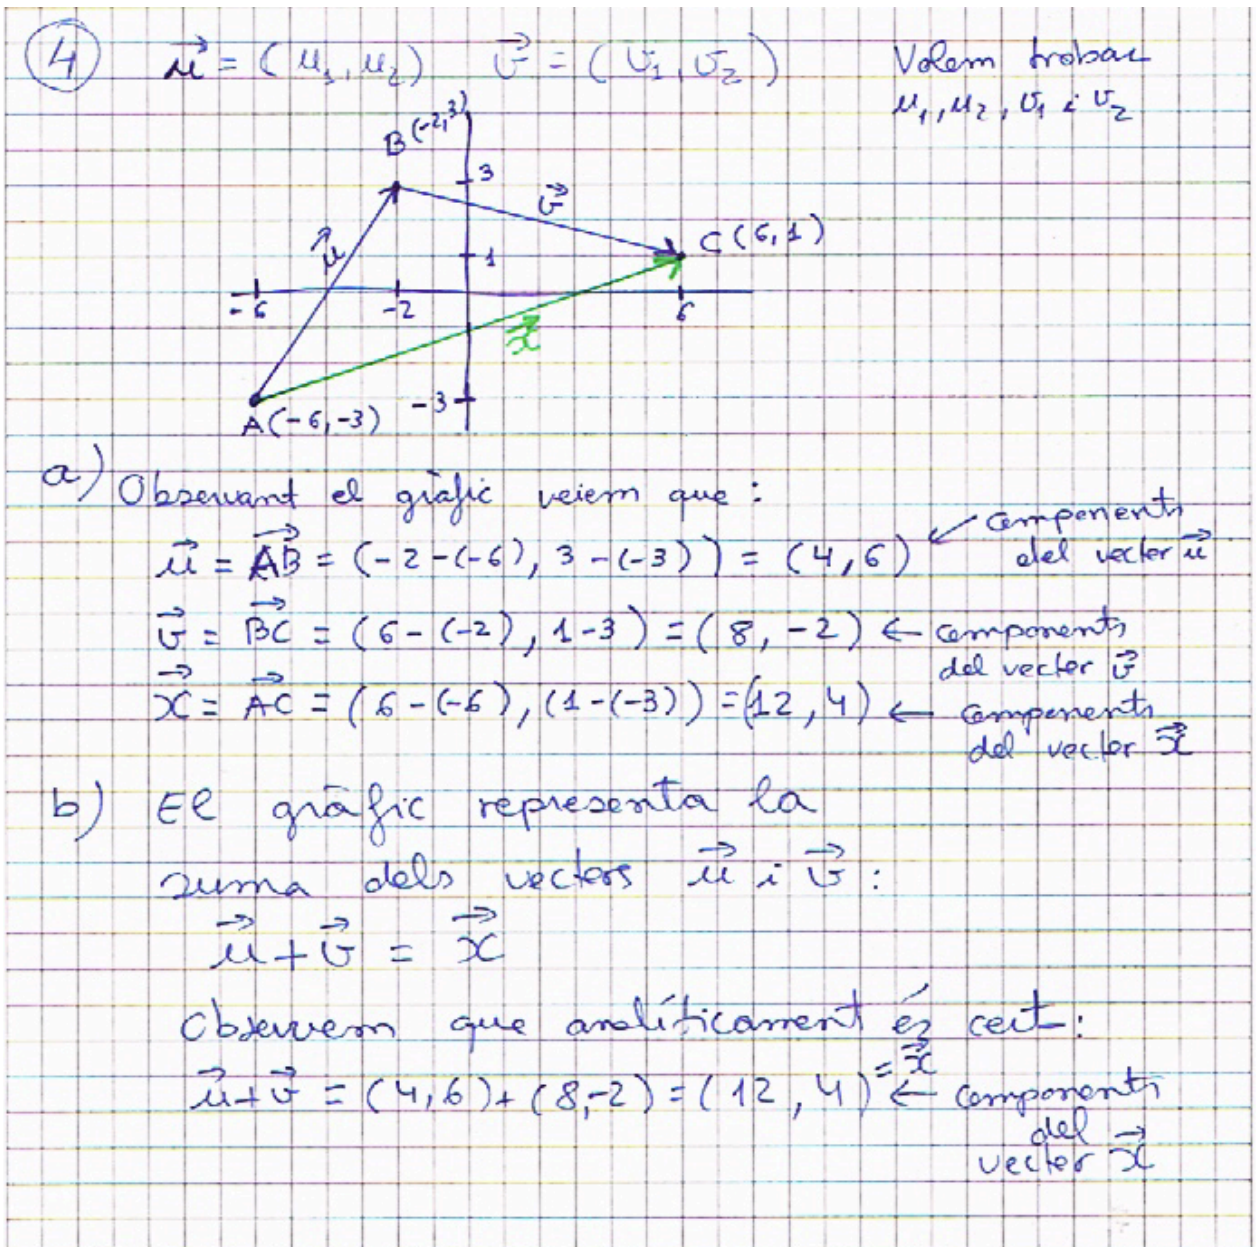 4 u⃗ = (u₁, u₂) v⃗ = (v₁, v₂) Volem trobar
u₁, u₂, v₁ i v₂
B(-2,3)
3
v⃗
C(6,1)
u⃗
1
-6 -2 6
x⃗
-3
A(-6,-3)
a) Observant el gràfic veiem que:
u⃗ = A⃗B⃗ = (-2-(-6), 3-(-3)) = (4,6) ↙ components
del vector u⃗
v⃗ = B⃗C⃗ = (6-(-2), 1-3) = (8, -2) ← components
del vector v⃗
x⃗ = A⃗C⃗ = (6-(-6), (1-(-3)) = (12, 4) ← components
del vector x⃗
b) El gràfic representa la
suma dels vectors u⃗ i v⃗:
u⃗ + v⃗ = x⃗
Observem que analíticament és cert:
u⃗+v⃗ = (4,6)+(8,-2) = (12, 4) = x⃗ ← components
del
vector x⃗